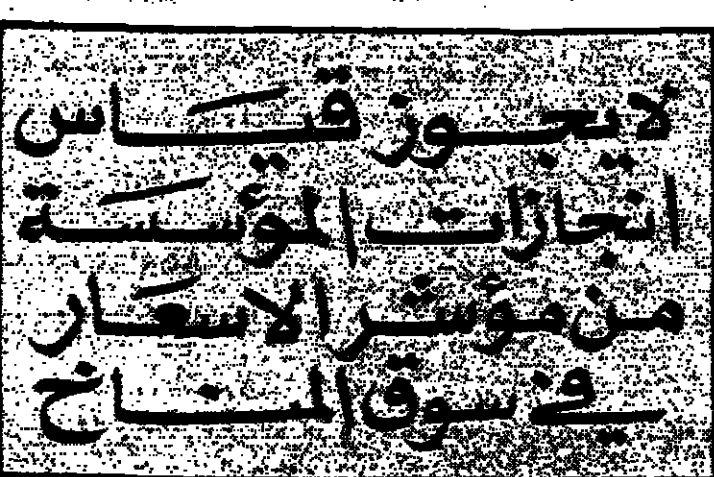 لا يجوز قياس
انجازات المؤسسة
من مؤشر الاسعار
في سوق المناخ